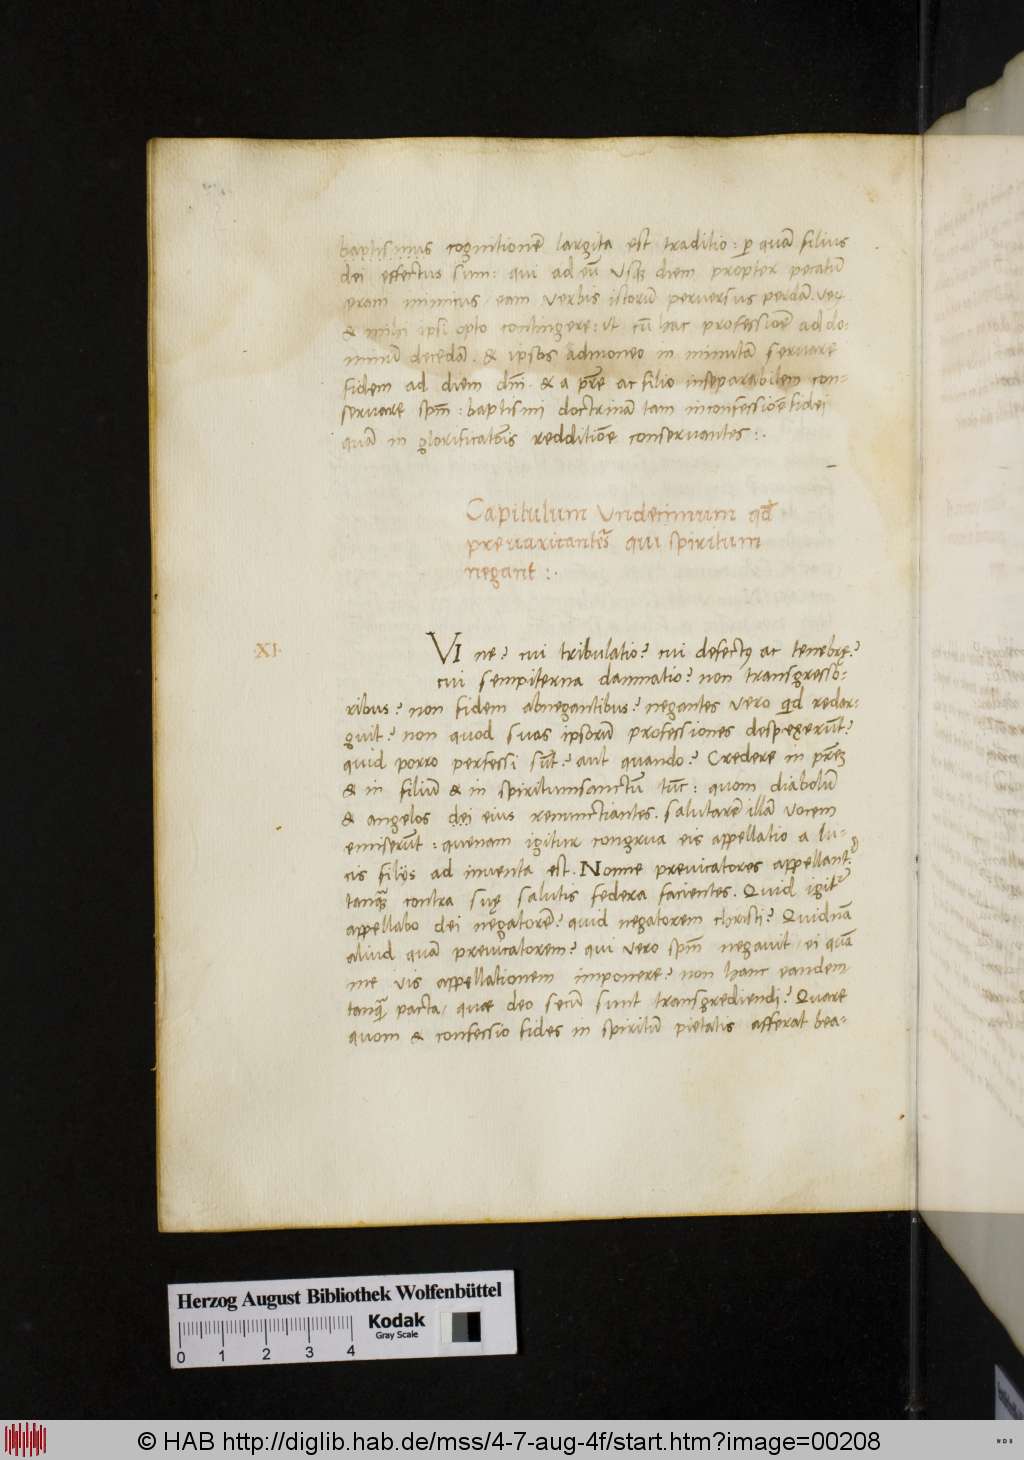 baptismus cognitionē largita est traditio: p quā filius
dei effectus sum: qui ad eū usq; diem propter pecatū
eram inimicus, eam verbis istorū perversus perdā. Veꝝ
& mihi ipsi opto contingere: ut cū hac professionē ad do-
minū decedā. & ipsos admoneo in minutā servare
fidem ad diem dn̄i. & a pr̄e ac filio inseparabilem con-
servare spm̄: baptismi doctrinā tam inconfessiōe fidei
quā in glorificatōis redditiōe conservantes:.
Capitulum Undecimum qd̄
prevaricantes qui spiritum
negant:.
·XI·
VI ne? cui tribulatio? cui defectꝰ ac tenebrę?
cui sempiterna damnatio? non transgresso-
ribus? non fidem abnegantibus? negantes vero qd redar-
guit? non quod suas ipsorū professiones despexerūt?
quid porro perfessi sūt? aut quando? Credere in pr̄em
& in filiū & in spiritumsanctū tūc: quom diabolū
& angelos dei eius renunctiantes. salutarē illā vocem
emiserūt: quenam igitur congrua eis appellatio a lu-
cis filijs ad inventa est. Nonne previcatores appellant̄
tanq̄ contra suę salutis federa facientes. Quid igitr̄
appellabo dei nęgatorē? quid negatorem christi? Quidnā
aliud quā prevīcatorem? qui vero spm̄ negavit, ei quā
me vis appellationem imponere? non hanc eandem
tanq̄ pacta, quæ deo secū sunt transgrediendi? Quare
quom & confessio fides in spiritū pietatis afferat bea-
Herzog August Bibliothek Wolfenbüttel
Kodak
Gray Scale
0 1 2 3 4
© HAB http://diglib.hab.de/mss/4-7-aug-4f/start.htm?image=00208